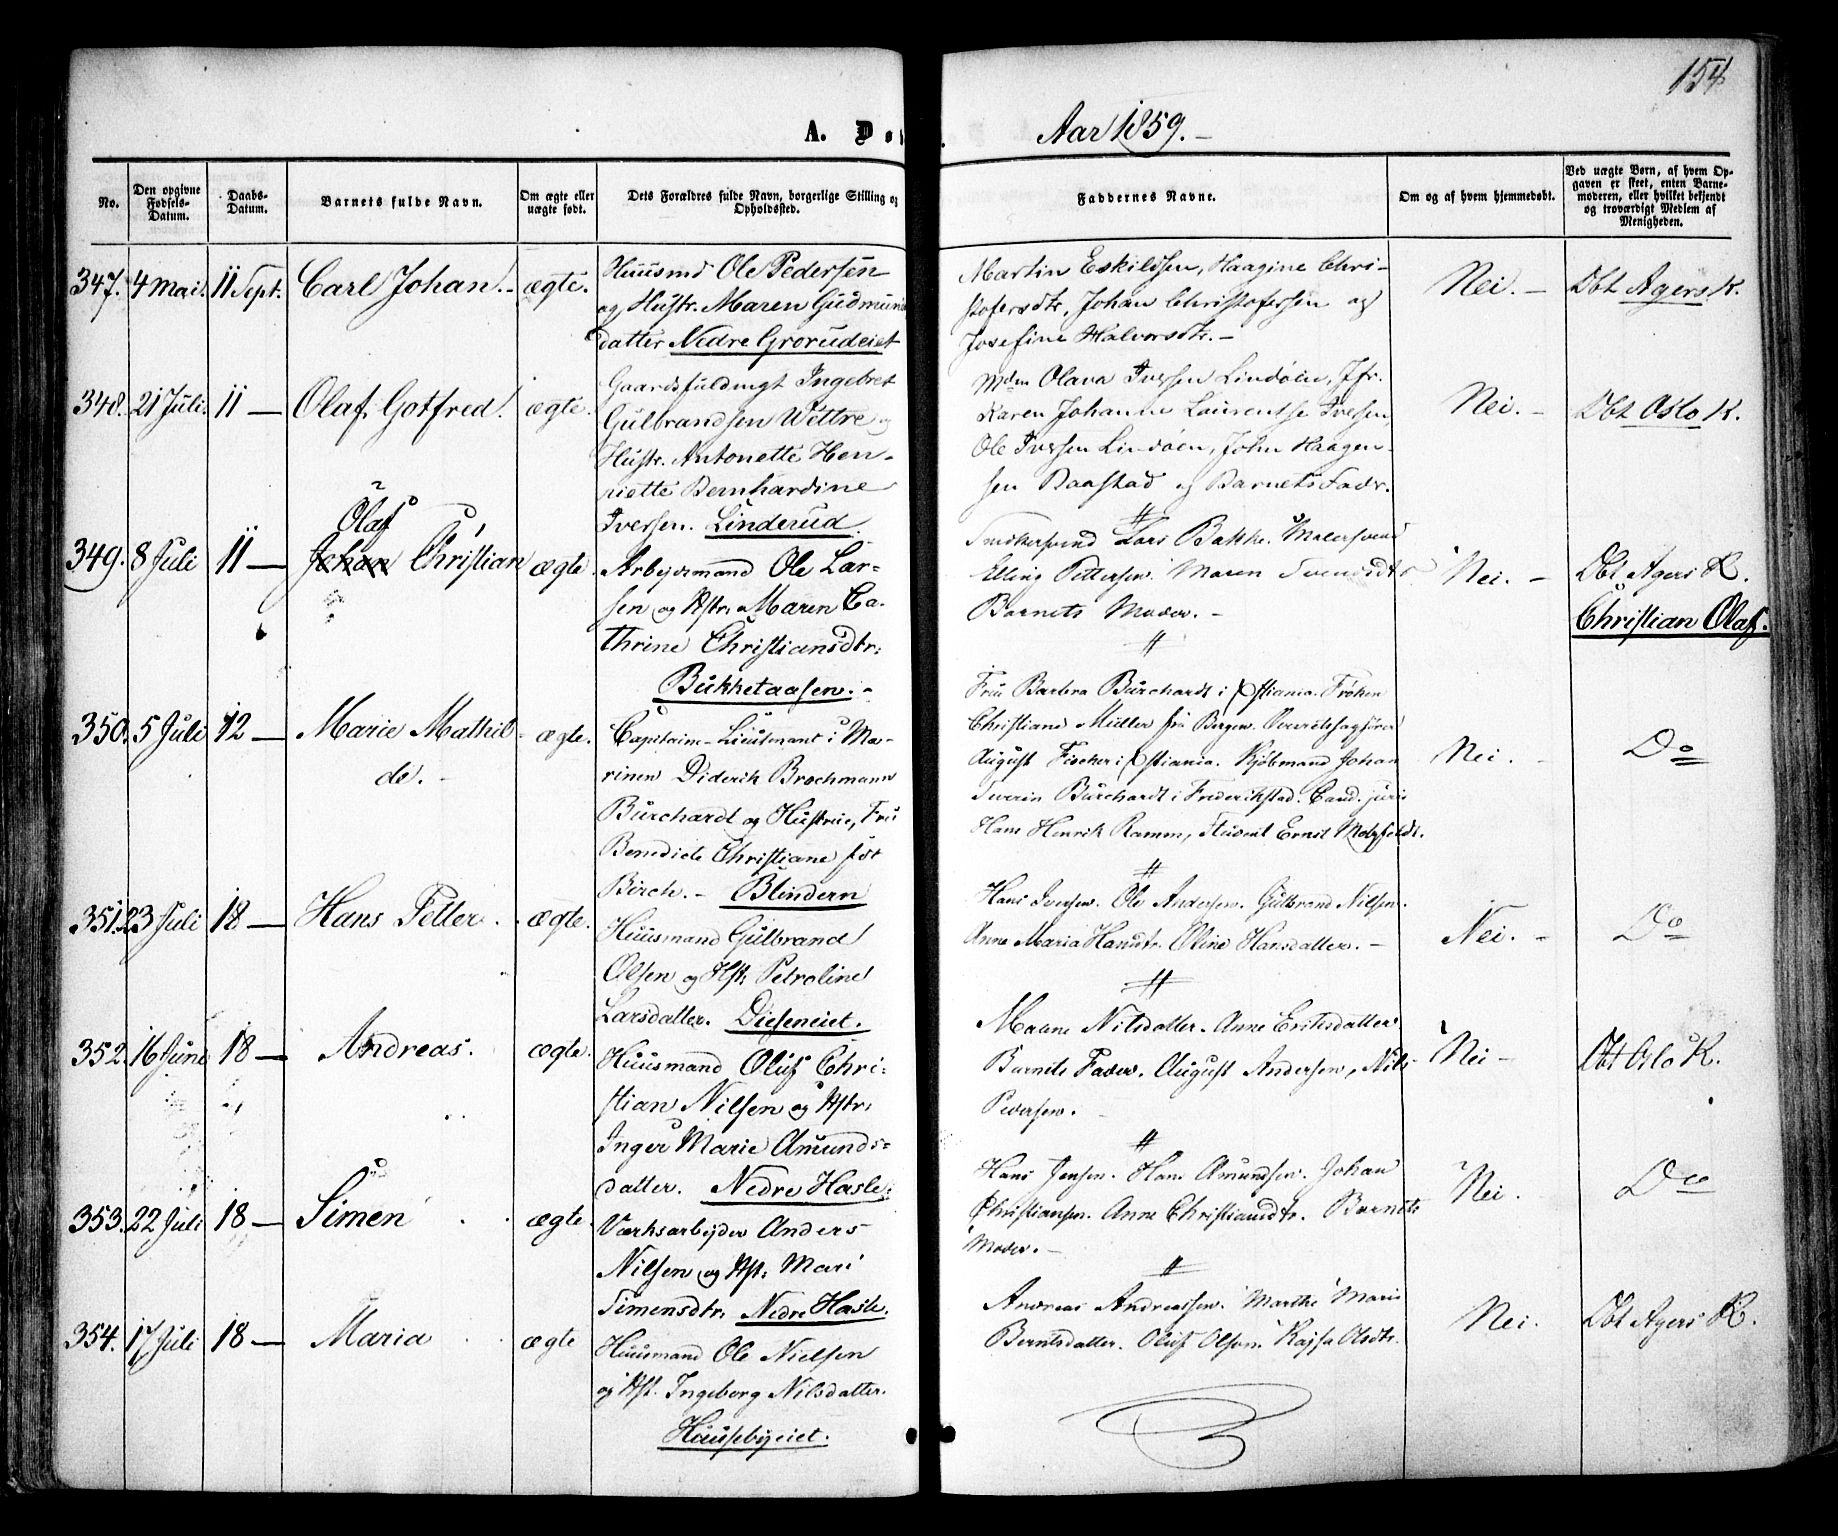 154
A. Dø
Aar 1859. –
No.
Den opgivne Fødsels-Datum.
Daabs-Datum.
Barnets fulde Navn.
Om ægte eller uægte født.
Dets Forældres fulde Navn, borgerlige Stilling og Opholdssted.
Faddernes Navne.
Om og af hvem hjemmedøbt.
Ved uægte Børn, af hvem Opgaven er skeet, enten Barnemoderen, eller hvilket bekjendt og troværdigt Medlem af Menigheden.
347. 4 Mai. 11 Sept. Carl Johan. – ægte.
Huusmd Ole Pedersen
og Hustr. Maren Gudmunds
datter Nedre Grorudeiet
Martin Eskildsen, Haagine Chri-
stofersdtr, Johan Christofersen og
Josefine Halvorsdtr. –
Nei. – Dbt Agers K.
348. 21 Juli. 11 — Olaf Gotfred. ægte.
Gaardsfuldmgt Ingebret
Gulbrandsen Wittre og
Hustr. Antonette Hen-
riette Bernhardine
Iversen. Linderud.
Mdm Olava Iversen Lindøen, Jfr.
Karen Johanne Laurentse Iversen,
Ole Iversen Lindøen, John Haagen-
sen Baastad og Barnets Fader.
Nei. – Dbt Oslo K.
349. 8 Juli 11 — Olaf
Johan Christian ægte.
Arbeidsmand Ole Lar-
sen og Hstr. Maren Ca-
thrine Christiansdtr.
Bukketaasen. –
Snedkersvend Lars Bakke. Malersvend
Elling Pettersen. Maren Svendsdtr
Barnets Moder. –
Nei. – Dbt Agers K.
Christian Olaf.
350. 5 Juli 12 — Marie Mathil-
de. – ægte.
Capitain-Lieutnant i Ma-
rinen Diderik Brochmann
Burchardt og Hustrue, Fru
Benedicte Christiane født
Birch. – Blindern
Fru Barbra Burchardt i Xstiania. Frøken
Christiane Müller fra Bergen. Overretssagfører
August Fischer i Xstiania. Kjøbmand Johan
Severin Burchardt i Frederikstad. Cand. juris
Hans Henrik Ramm, Student Ernst Motzfeldt.
Nei. – Do
351. 23 Juli 18 — Hans Petter. ægte.
Huusmand Gulbrand
Olsen og Hst. Petroline
Larsdatter. Dieseneiet.
Hans Iversen. Ole Andersen. Gulbrand Nilsen.
Anne Maria Hansdtr. Oline Hansdatter. –
Nei. – Do
352. 16 Juni 18 — Andreas. ægte.
Huusmand Oluf Chri-
stian Nilsen og Hstr.
Inger Marie Amunds-
datter. Nedre Hasle.
Maane Nilsdatter. Anne Eriksdatter.
Barnets Fader. August Andersen, Nils
Pedersen.
Nei – Dbt Oslo K.
353. 22 Juli 18 — Simen ægte.
Værksarbejder Anders
Nilsen og Hst. Mari
Simensdtr. Nedre Hasle.
Hans Jensen. Hans Amundsen. Johan
Christiansen. Anne Christiansdtr. Barnets
Moder. –
Nei. Do
354. 17 Juli 18 — Maria ægte
Huusmand Ole Nielsen
og Hst. Ingeborg Nilsdatter.
Hausebyeiet.
Andreas Andreassen. Marthe Marie
Berntsdatter. Oluf Olsen. Kajsa Olsdtr.
Nei. Dbt Agers K.